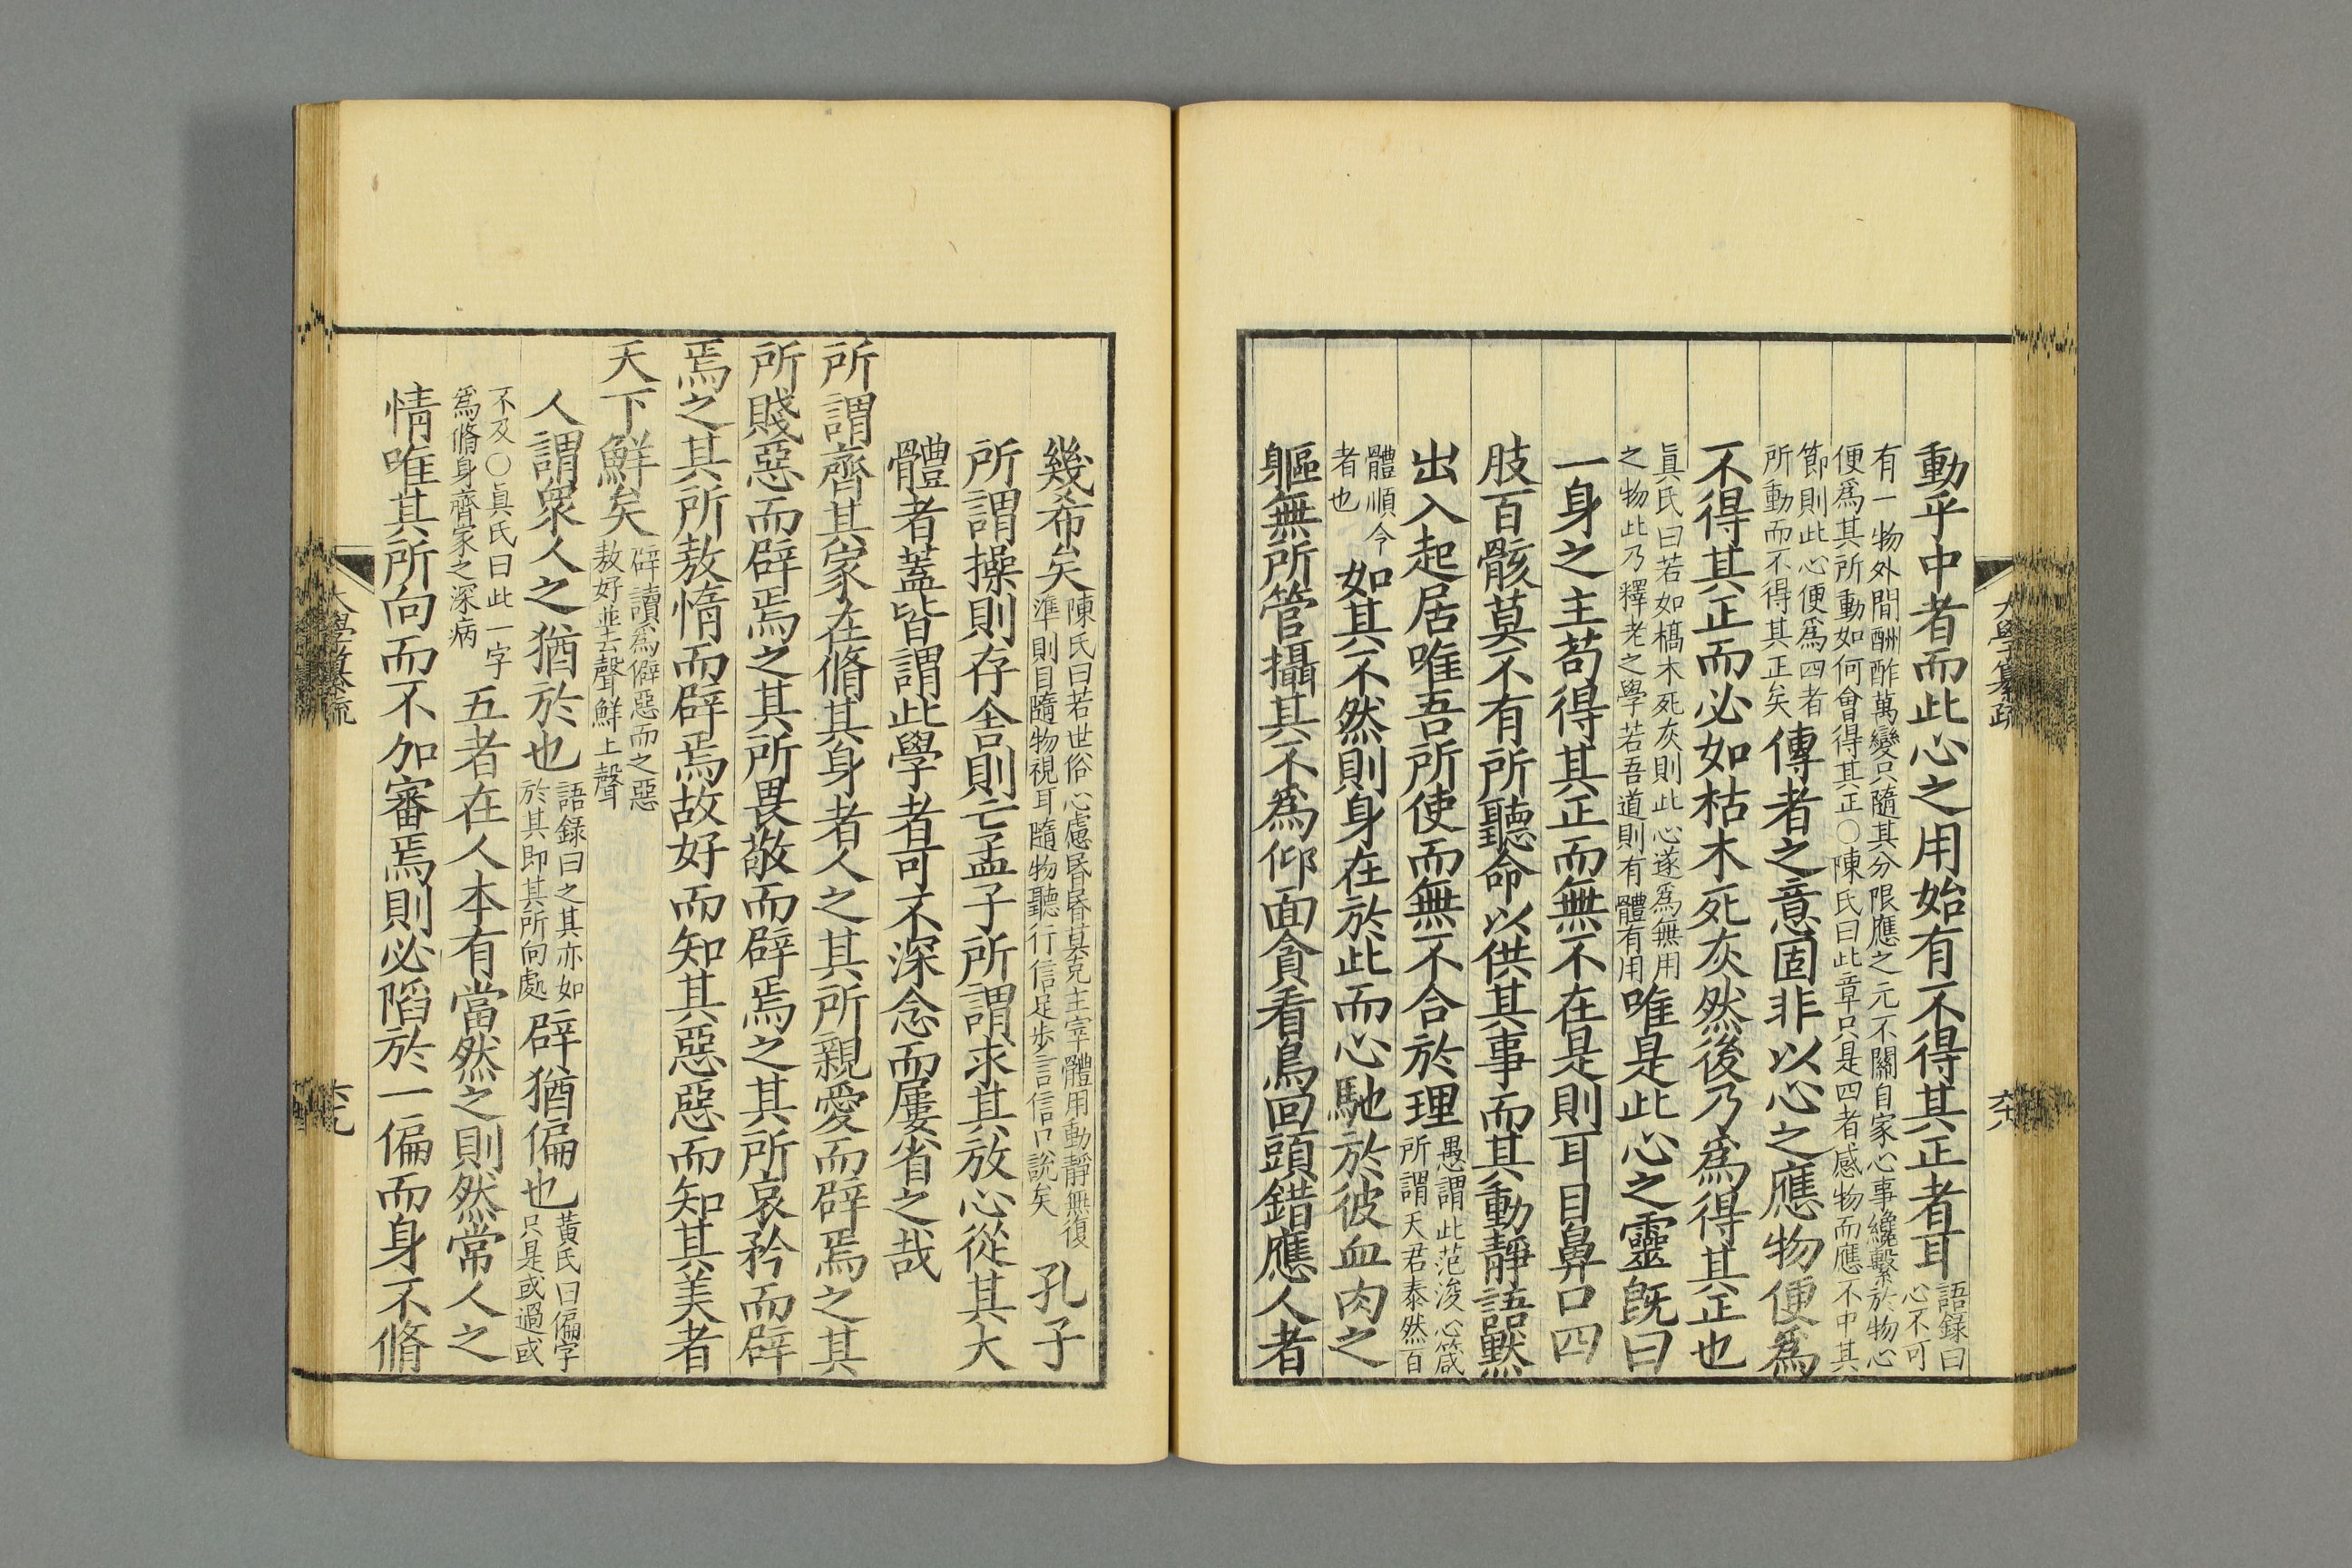 動乎中者而此心之用始有不得其正者耳語錄曰心不可
有一物外間酬酢萬變只隨其分限應之元不關自家心事纔繫於物心
便爲其所動如何會得其正○陳氏曰此章只是四者感物而應不中其
節則此心便爲四者所動而不得其正矣傳者之意固非以心之應物便爲
不得其正而必如枯木死灰然後乃爲得其正也
眞氏曰若如槁木死灰則此心遂爲無用之物此乃釋老之學若吾道則有體有用唯是此心之靈旣曰
一身之主苟得其正而無不在是則耳目鼻口四
肢百骸莫不有所聽命以供其事而其動靜語默
出入起居唯吾所使而無不合於理愚謂此范浚心箴所謂天君泰然百
體順令者也如其不然則身在於此而心馳於彼血肉之
軀無所管攝其不爲仰面貪看鳥回頭錯應人者
大學纂疏
六八
幾希矣陳氏曰若世俗心慮昏昏莫克主宰體用動靜無復準則目隨物視耳隨物聽行信足步言信口說矣孔子
所謂操則存舍則亡孟子所謂求其放心從其大
體者蓋皆謂此學者可不深念而屢省之哉
所謂齊其家在脩其身者人之其所親愛而辟焉之其
所賤惡而辟焉之其所畏敬而辟焉之其所哀矜而辟
焉之其所敖惰而辟焉故好而知其惡惡而知其美者
天下鮮矣辟讀爲僻惡而之惡敖好並去聲鮮上聲
人謂衆人之猶於也語錄曰之其亦如於其即其所向處辟猶偏也黃氏曰偏字只是或過或
不及○眞氏曰此一字爲脩身齊家之深病五者在人本有當然之則然常人之
情唯其所向而不加審焉則必陷於一偏而身不脩
大學纂疏
六九